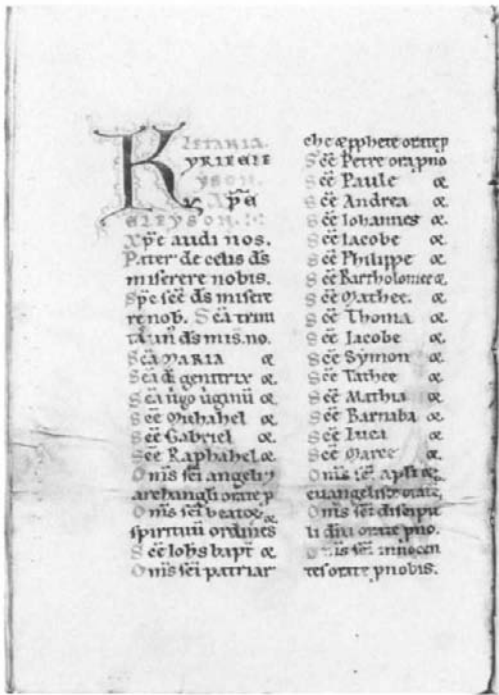 LETANIA.
KYRIE ELE
YSON.
Xp̄e
ELEYSON.
Xp̄e audi nos.
Pater de celis ds̄
miserere nobis.
Sp̄c sc̄e ds̄ misere
re nob. Sc̄a trini
tas un ds̄ mis. no.
Sc̄a MARIA oꝛ
Sc̄a dī genitrix oꝛ
Sc̄a uirgo uirginū oꝛ
Sc̄e Michahel oꝛ
Sc̄e Gabriel oꝛ
Sc̄e Raphahel oꝛ
Om̄s sc̄i angeli &
archangli orate p
Om̄s sc̄i beatoꝝ
spirituū ordines oꝛ
Sc̄e Iohs bapt̄ oꝛ
Om̄s sc̄i patriar
che & pphete orate p
Sc̄e Petre ora p no
Sc̄e Paule oꝛ
Sc̄e Andrea oꝛ
Sc̄e Iohannes oꝛ
Sc̄e Iacobe oꝛ
Sc̄e Philippe oꝛ
Sc̄e Bartholomee oꝛ
Sc̄e Mathee. oꝛ
Sc̄e Thoma oꝛ
Sc̄e Iacobe oꝛ
Sc̄e Symon oꝛ
Sc̄e Tathee oꝛ
Sc̄e Mathia oꝛ
Sc̄e Barnaba oꝛ
Sc̄e Luca oꝛ
Sc̄e Marce oꝛ
Om̄s sc̄i apli &
euangeliste orate,
Om̄s sc̄i discipu
li dn̄i orate p no.
Om̄s sc̄i innocen
tes orate p nobis.